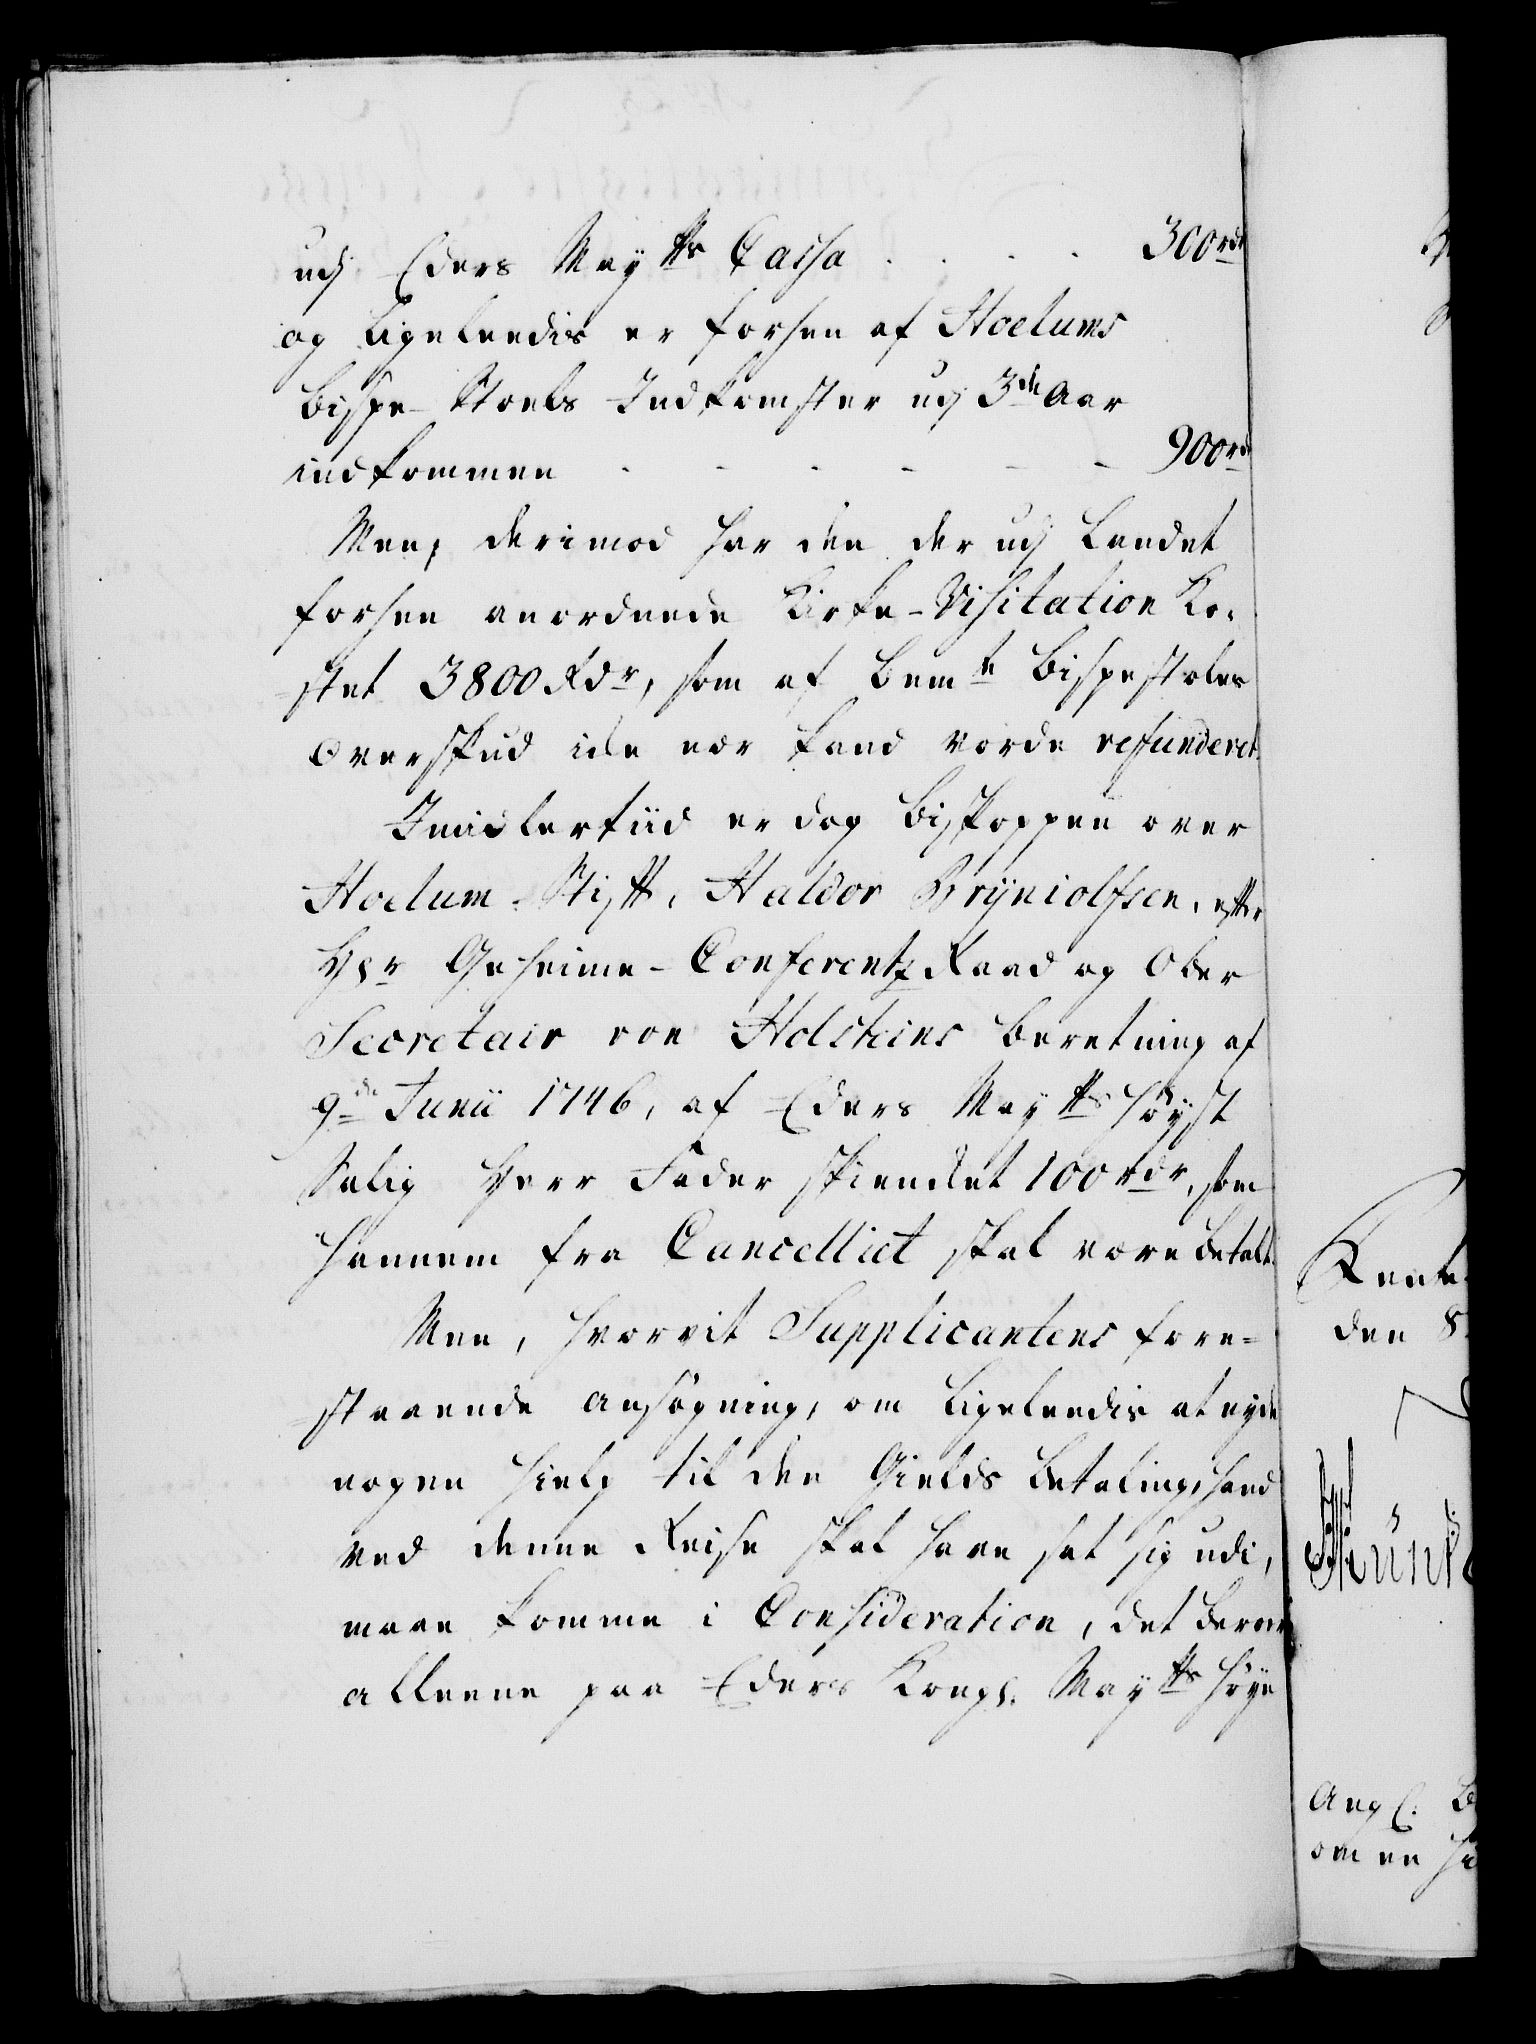 udj Eders Maytts Cassa . . . . 300 rdr
og ligeleedis er forhen af Hoelums
Bispe-Stoels Indkomster udj 3de Aar
indkommen - - - - - - 900 rd
Men, derimod har den der udj Landet
forhen anordnede Kirke-Visitation Ko-
stet 3800 Rdr, som af bemte Bispestoles
Overskud icke nær kand vorde refunderet.
Imidlertiid er dog Biskoppen over
Hoelum Stift, Haldor Brÿniolfsen, efter
Hr Geheime-Conferentz Raad og Ober
Secretair von Holsteins Beretning af
9de Junii 1746, af Eders Maytts Høyst
Salig Herr Fader skiencket 100 rdr, som
hannem fra Cancelliet skal være betalt.
Men, hvorvit Supplicantens fore-
staaende ansøgning, om ligeleedis at nyde
nogen Hielp til den Gields betaling, hand
ved denne Reise skal have sat sig udi,
maae komme i Consideration, det beroer
alleene paa Eders Kongl. Maytts høye
Rente
den 8
Ang
om en